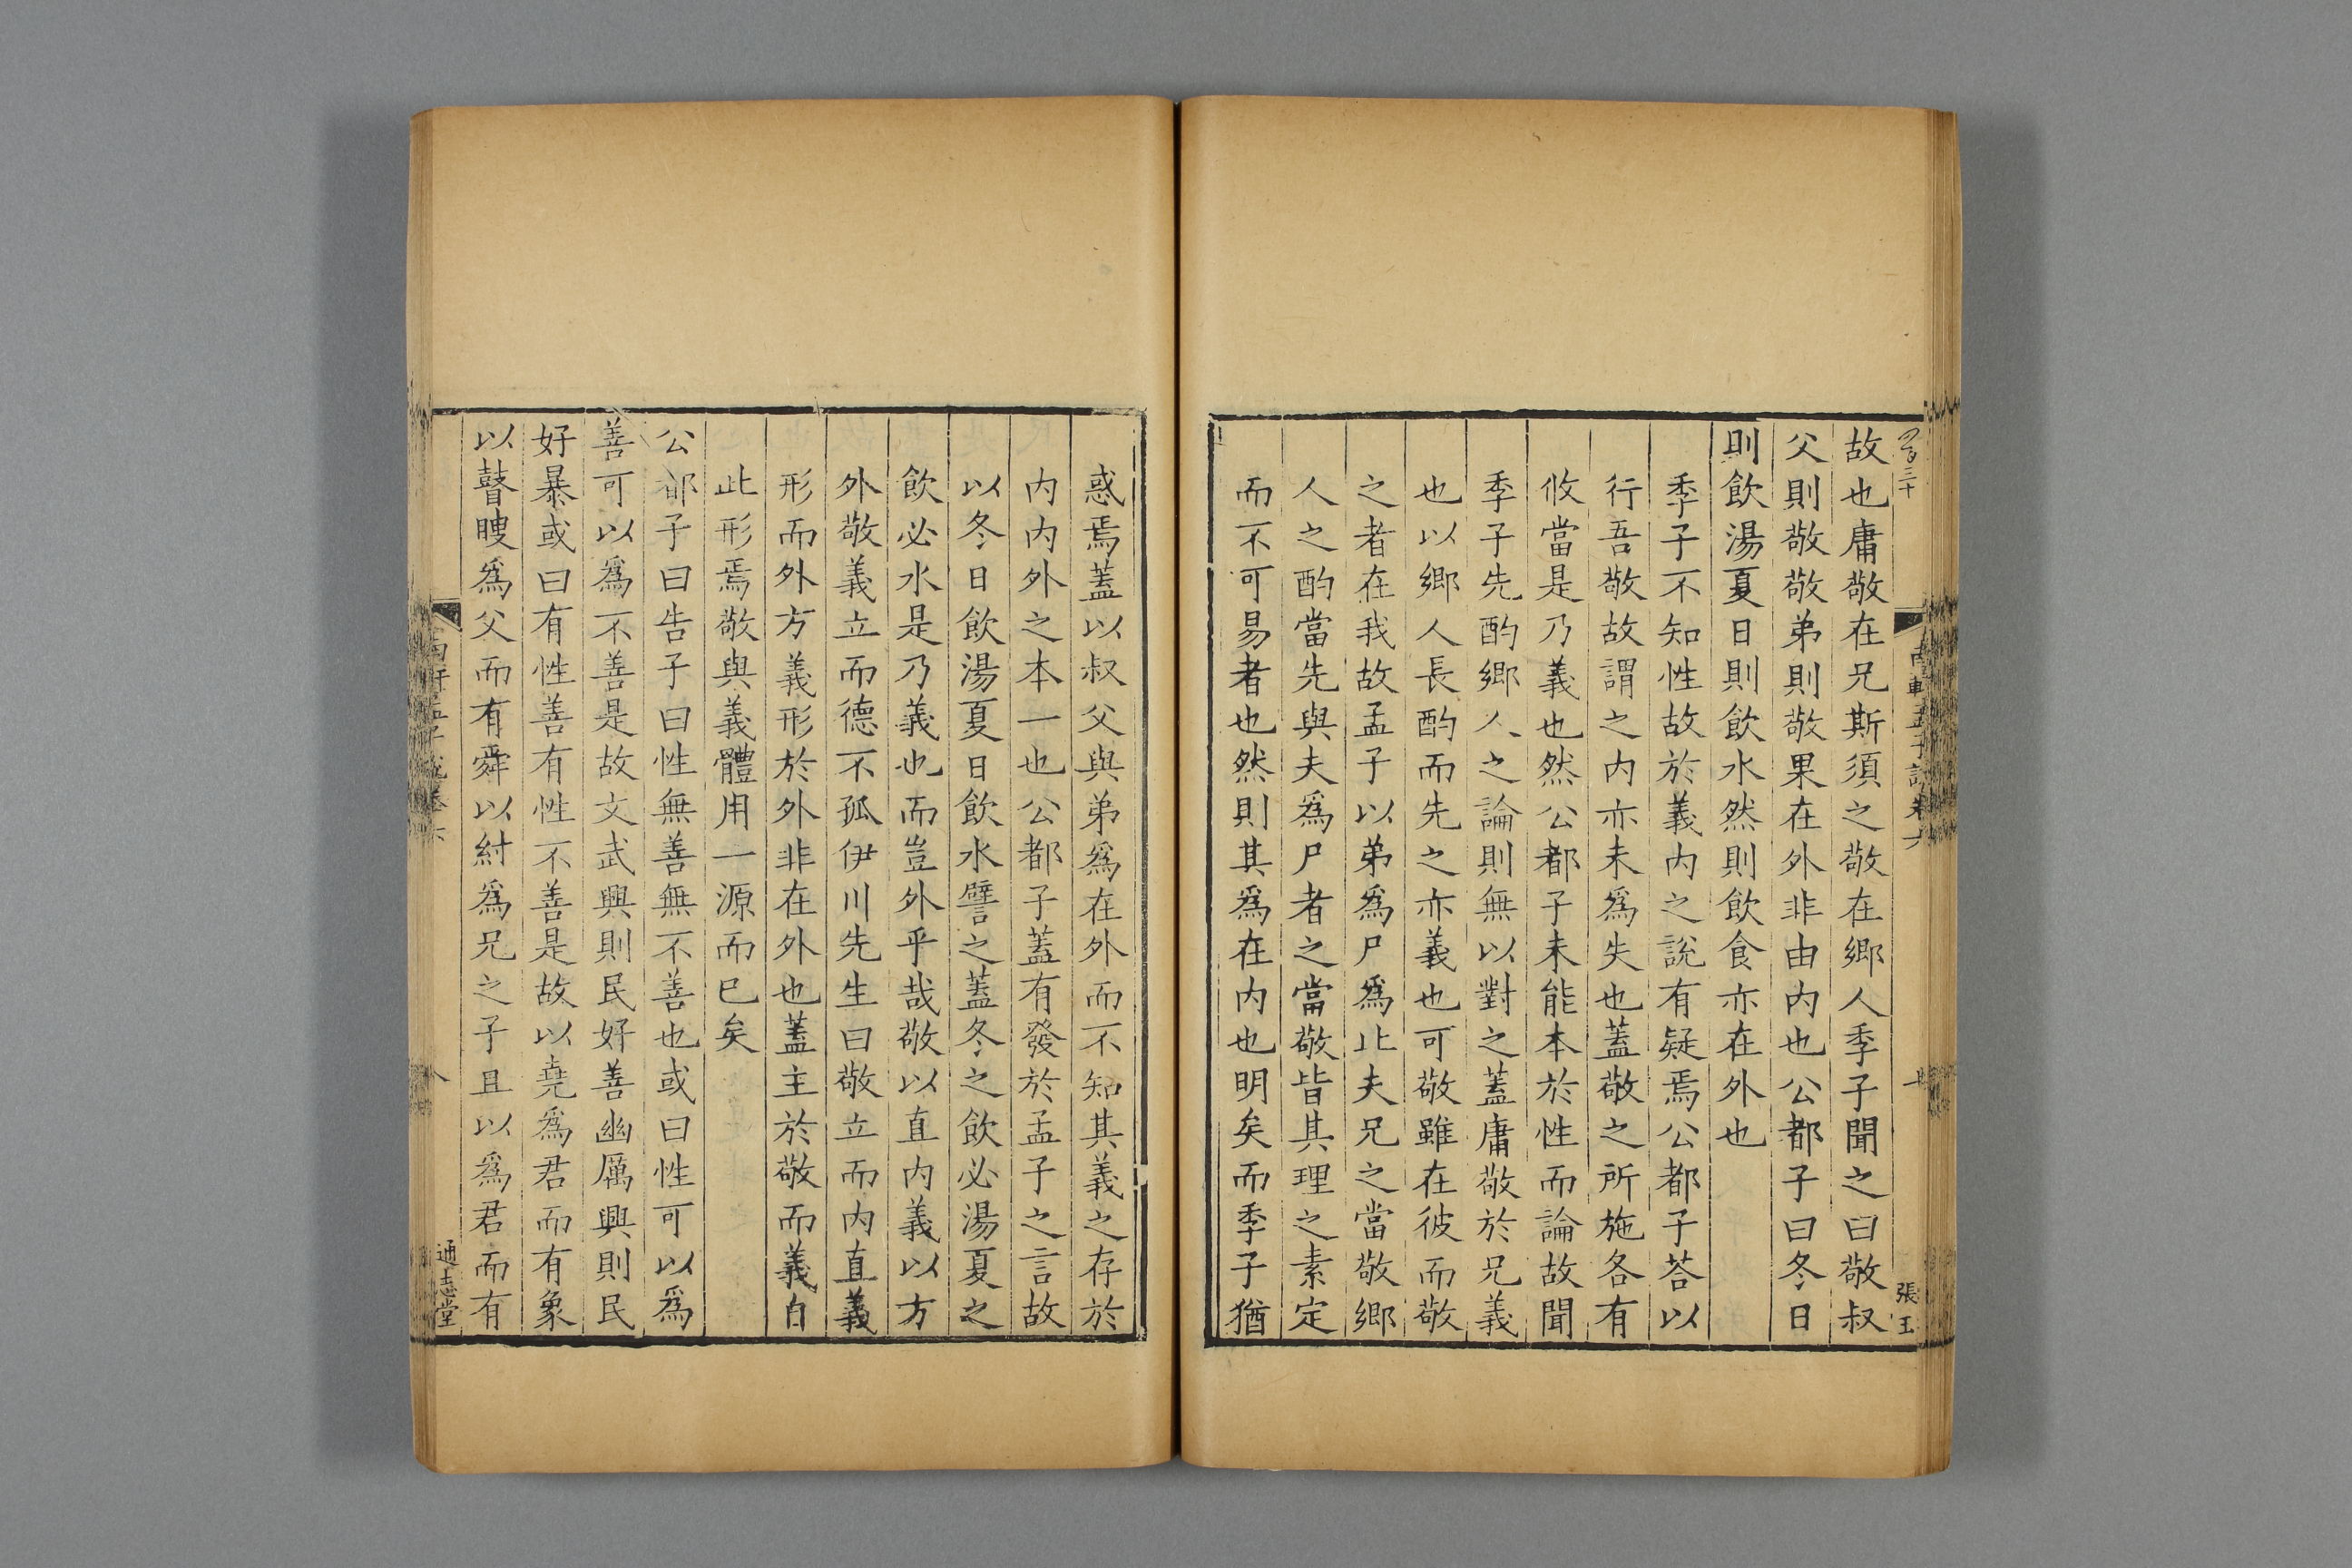 故也庸敬在兄斯須之敬在鄉人季子聞之曰敬叔
父則敬敬弟則敬果在外非由内也公都子曰冬日
則飲湯夏日則飲水然則飲食亦在外也
季子不知性故於義内之說有疑焉公都子荅以
行吾敬故謂之内亦未爲失也蓋敬之所施各有
攸當是乃義也然公都子未能本於性而論故聞
季子先酌鄉人之論則無以對之蓋庸敬於兄義
也以鄉人長酌而先之亦義也可敬雖在彼而敬
之者在我故孟子以弟爲尸爲比夫兄之當敬鄉
人之酌當先與夫爲尸者之當敬皆其理之素定
而不可易者也然則其爲在内也明矣而季子猶
張玉
惑焉蓋以叔父與弟爲在外而不知其義之存於
内内外之本一也公都子蓋有發於孟子之言故
以冬日飲湯夏日飲水譬之蓋冬之飲必湯夏之
飲必水是乃義也而豈外乎哉敬以直内義以方
外敬義立而德不孤伊川先生曰敬立而内直義
形而外方義形於外非在外也蓋主於敬而義自
此形焉敬與義體用一源而已矣
公都子曰告子曰性無善無不善也或曰性可以爲
善可以爲不善是故文武興則民好善幽厲興則民
好暴或曰有性善有性不善是故以堯爲君而有象
以瞽瞍爲父而有舜以紂爲兄之子且以爲君而有
通志堂